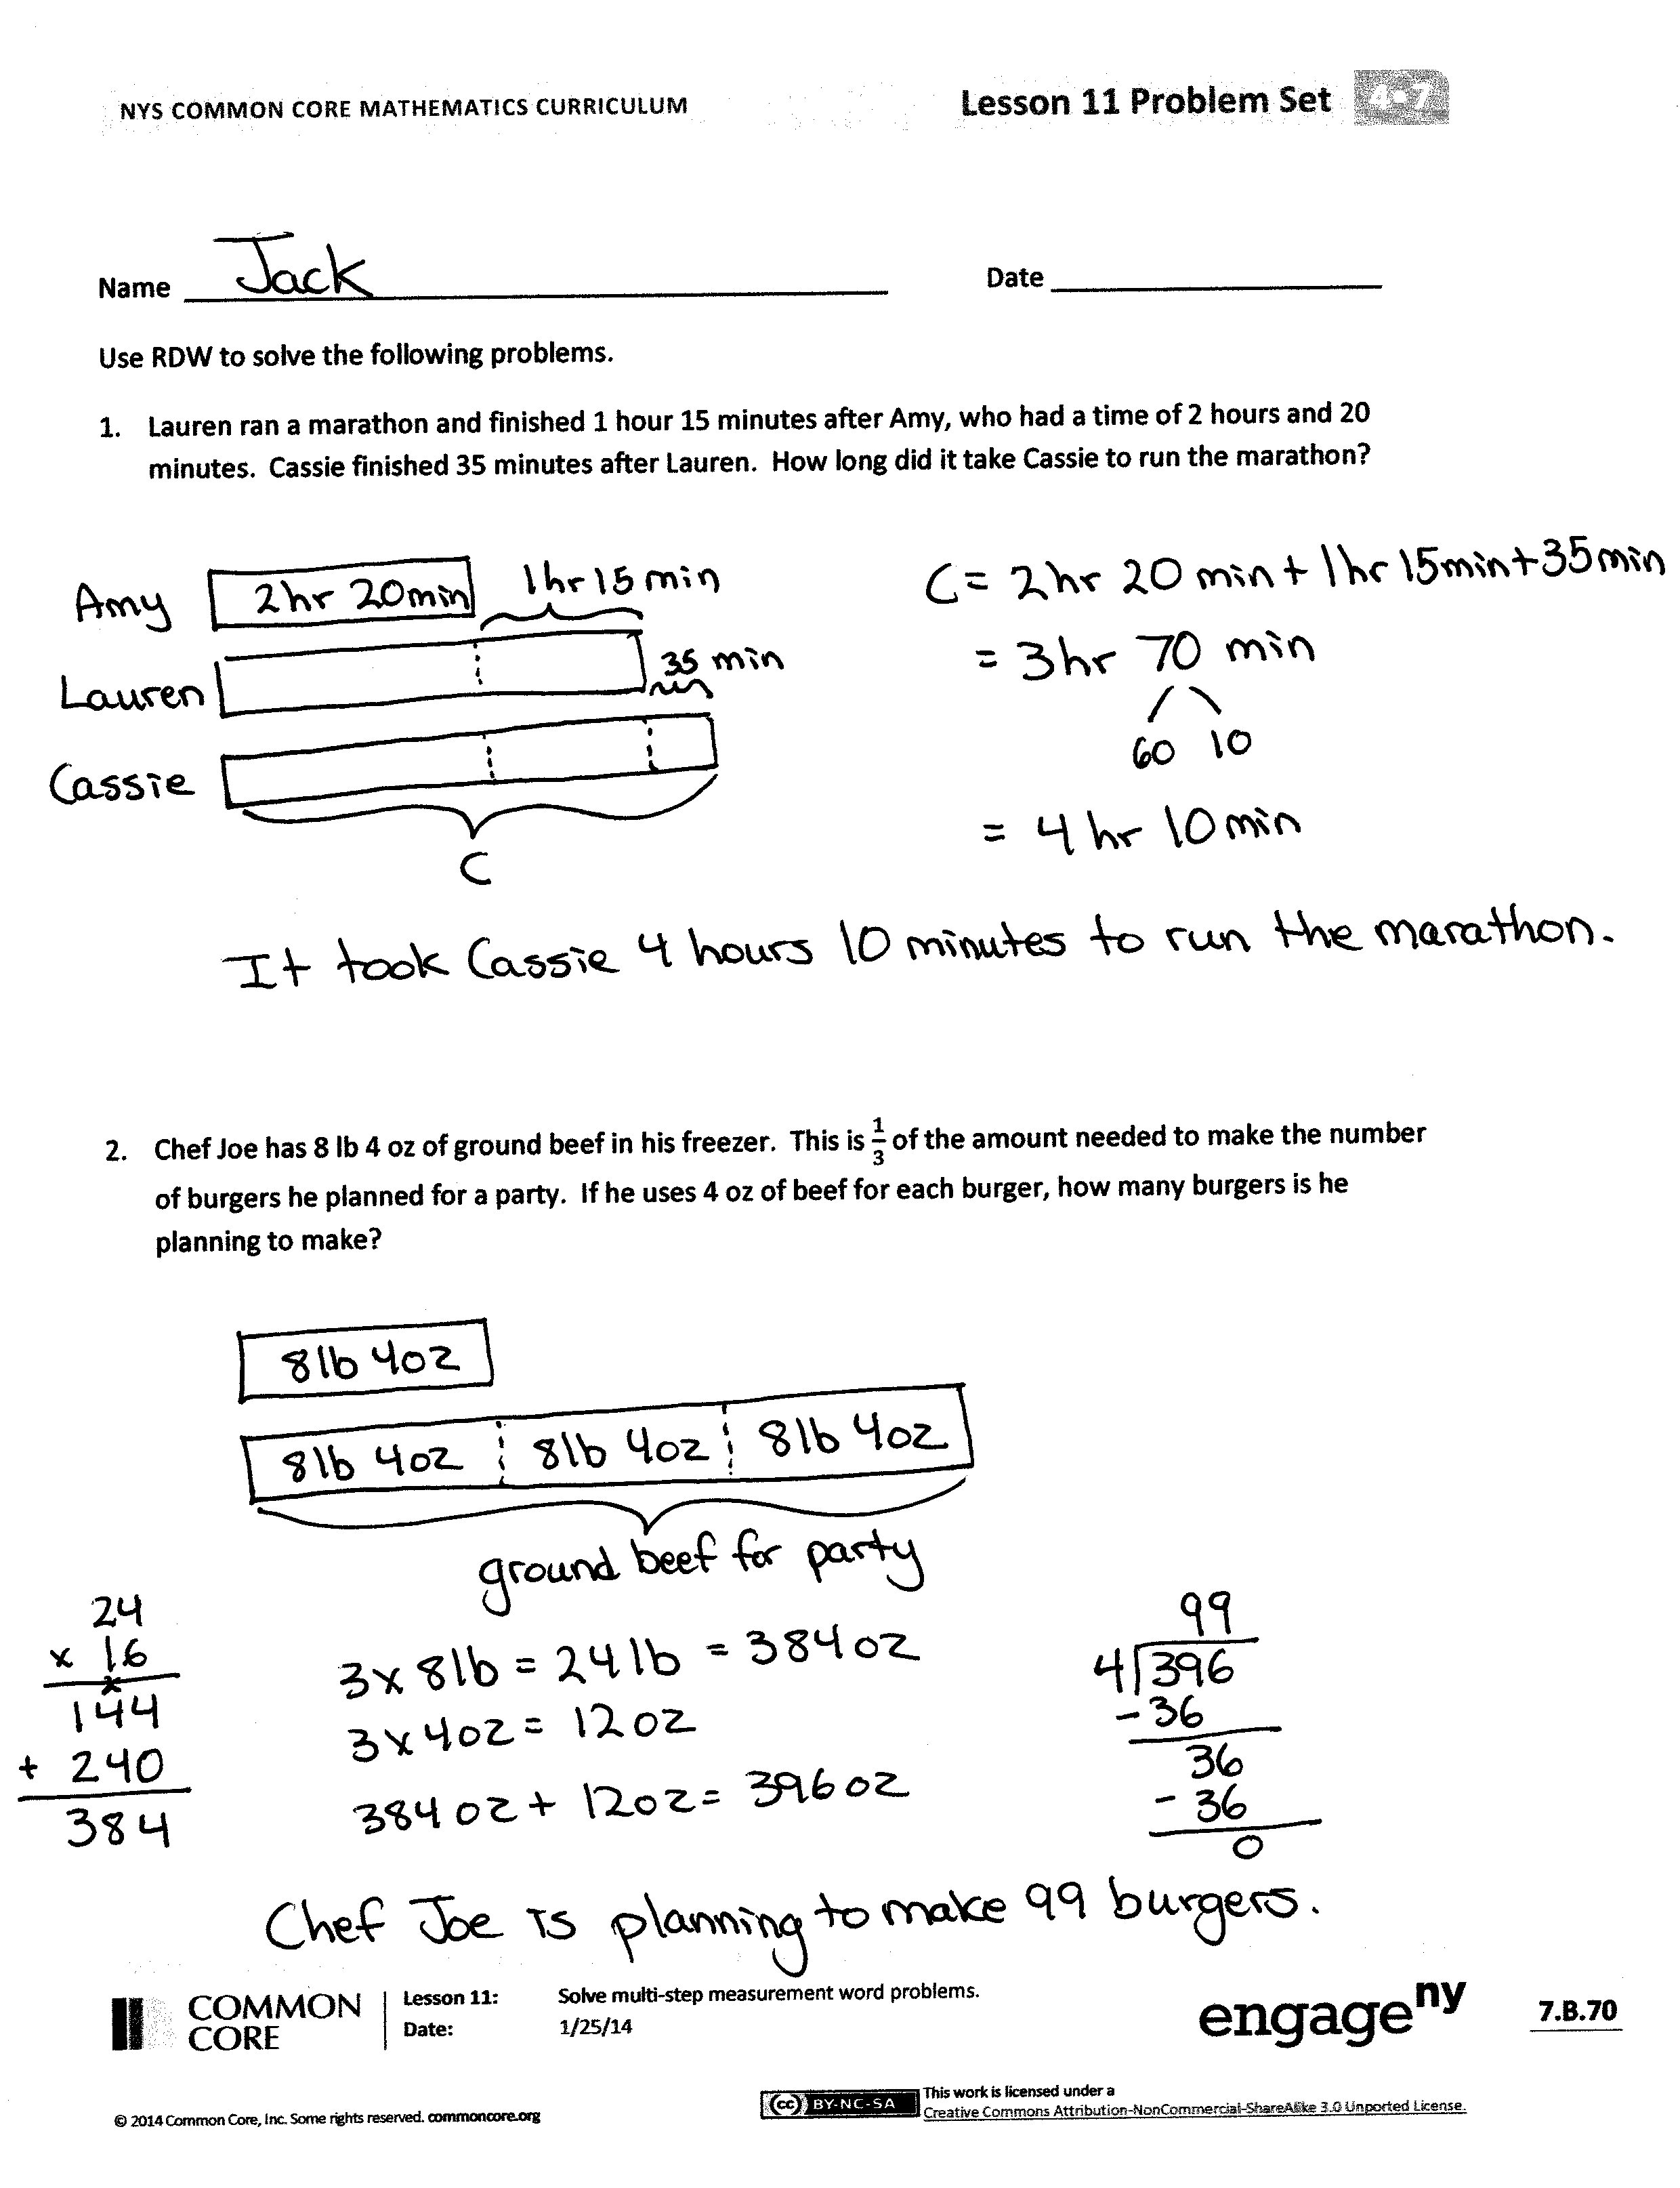 NYS COMMON CORE MATHEMATICS CURRICULUM
Lesson 11 Problem Set 4•7
Name Jack
Date
Use RDW to solve the following problems.
1. Lauren ran a marathon and finished 1 hour 15 minutes after Amy, who had a time of 2 hours and 20
minutes. Cassie finished 35 minutes after Lauren. How long did it take Cassie to run the marathon?
Amy 2hr 20min 1hr 15 min
Lauren 35 min
Cassie
C
C = 2hr 20 min + 1hr 15min + 35min
= 3hr 70 min
60 10
= 4 hr 10min
It took Cassie 4 hours 10 minutes to run the marathon.
2. Chef Joe has 8 lb 4 oz of ground beef in his freezer. This is 1/3 of the amount needed to make the number
of burgers he planned for a party. If he uses 4 oz of beef for each burger, how many burgers is he
planning to make?
8lb 4oz
8lb 4oz 8lb 4oz 8lb 4oz
ground beef for party
24
x 16
144
+ 240
384
3 x 8lb = 24 lb = 384 oz
3 x 4oz = 12 oz
384 oz + 12oz = 396 oz
99
4 396
- 36
36
- 36
0
Chef Joe is planning to make 99 burgers.
COMMON
CORE
Lesson 11: Solve multi-step measurement word problems.
Date: 1/25/14
engage ny
7.B.70
© 2014 Common Core, Inc. Some rights reserved. commoncore.org
cc BY-NC-SA
This work is licensed under a
Creative Commons Attribution-NonCommercial-ShareAlike 3.0 Unported License.